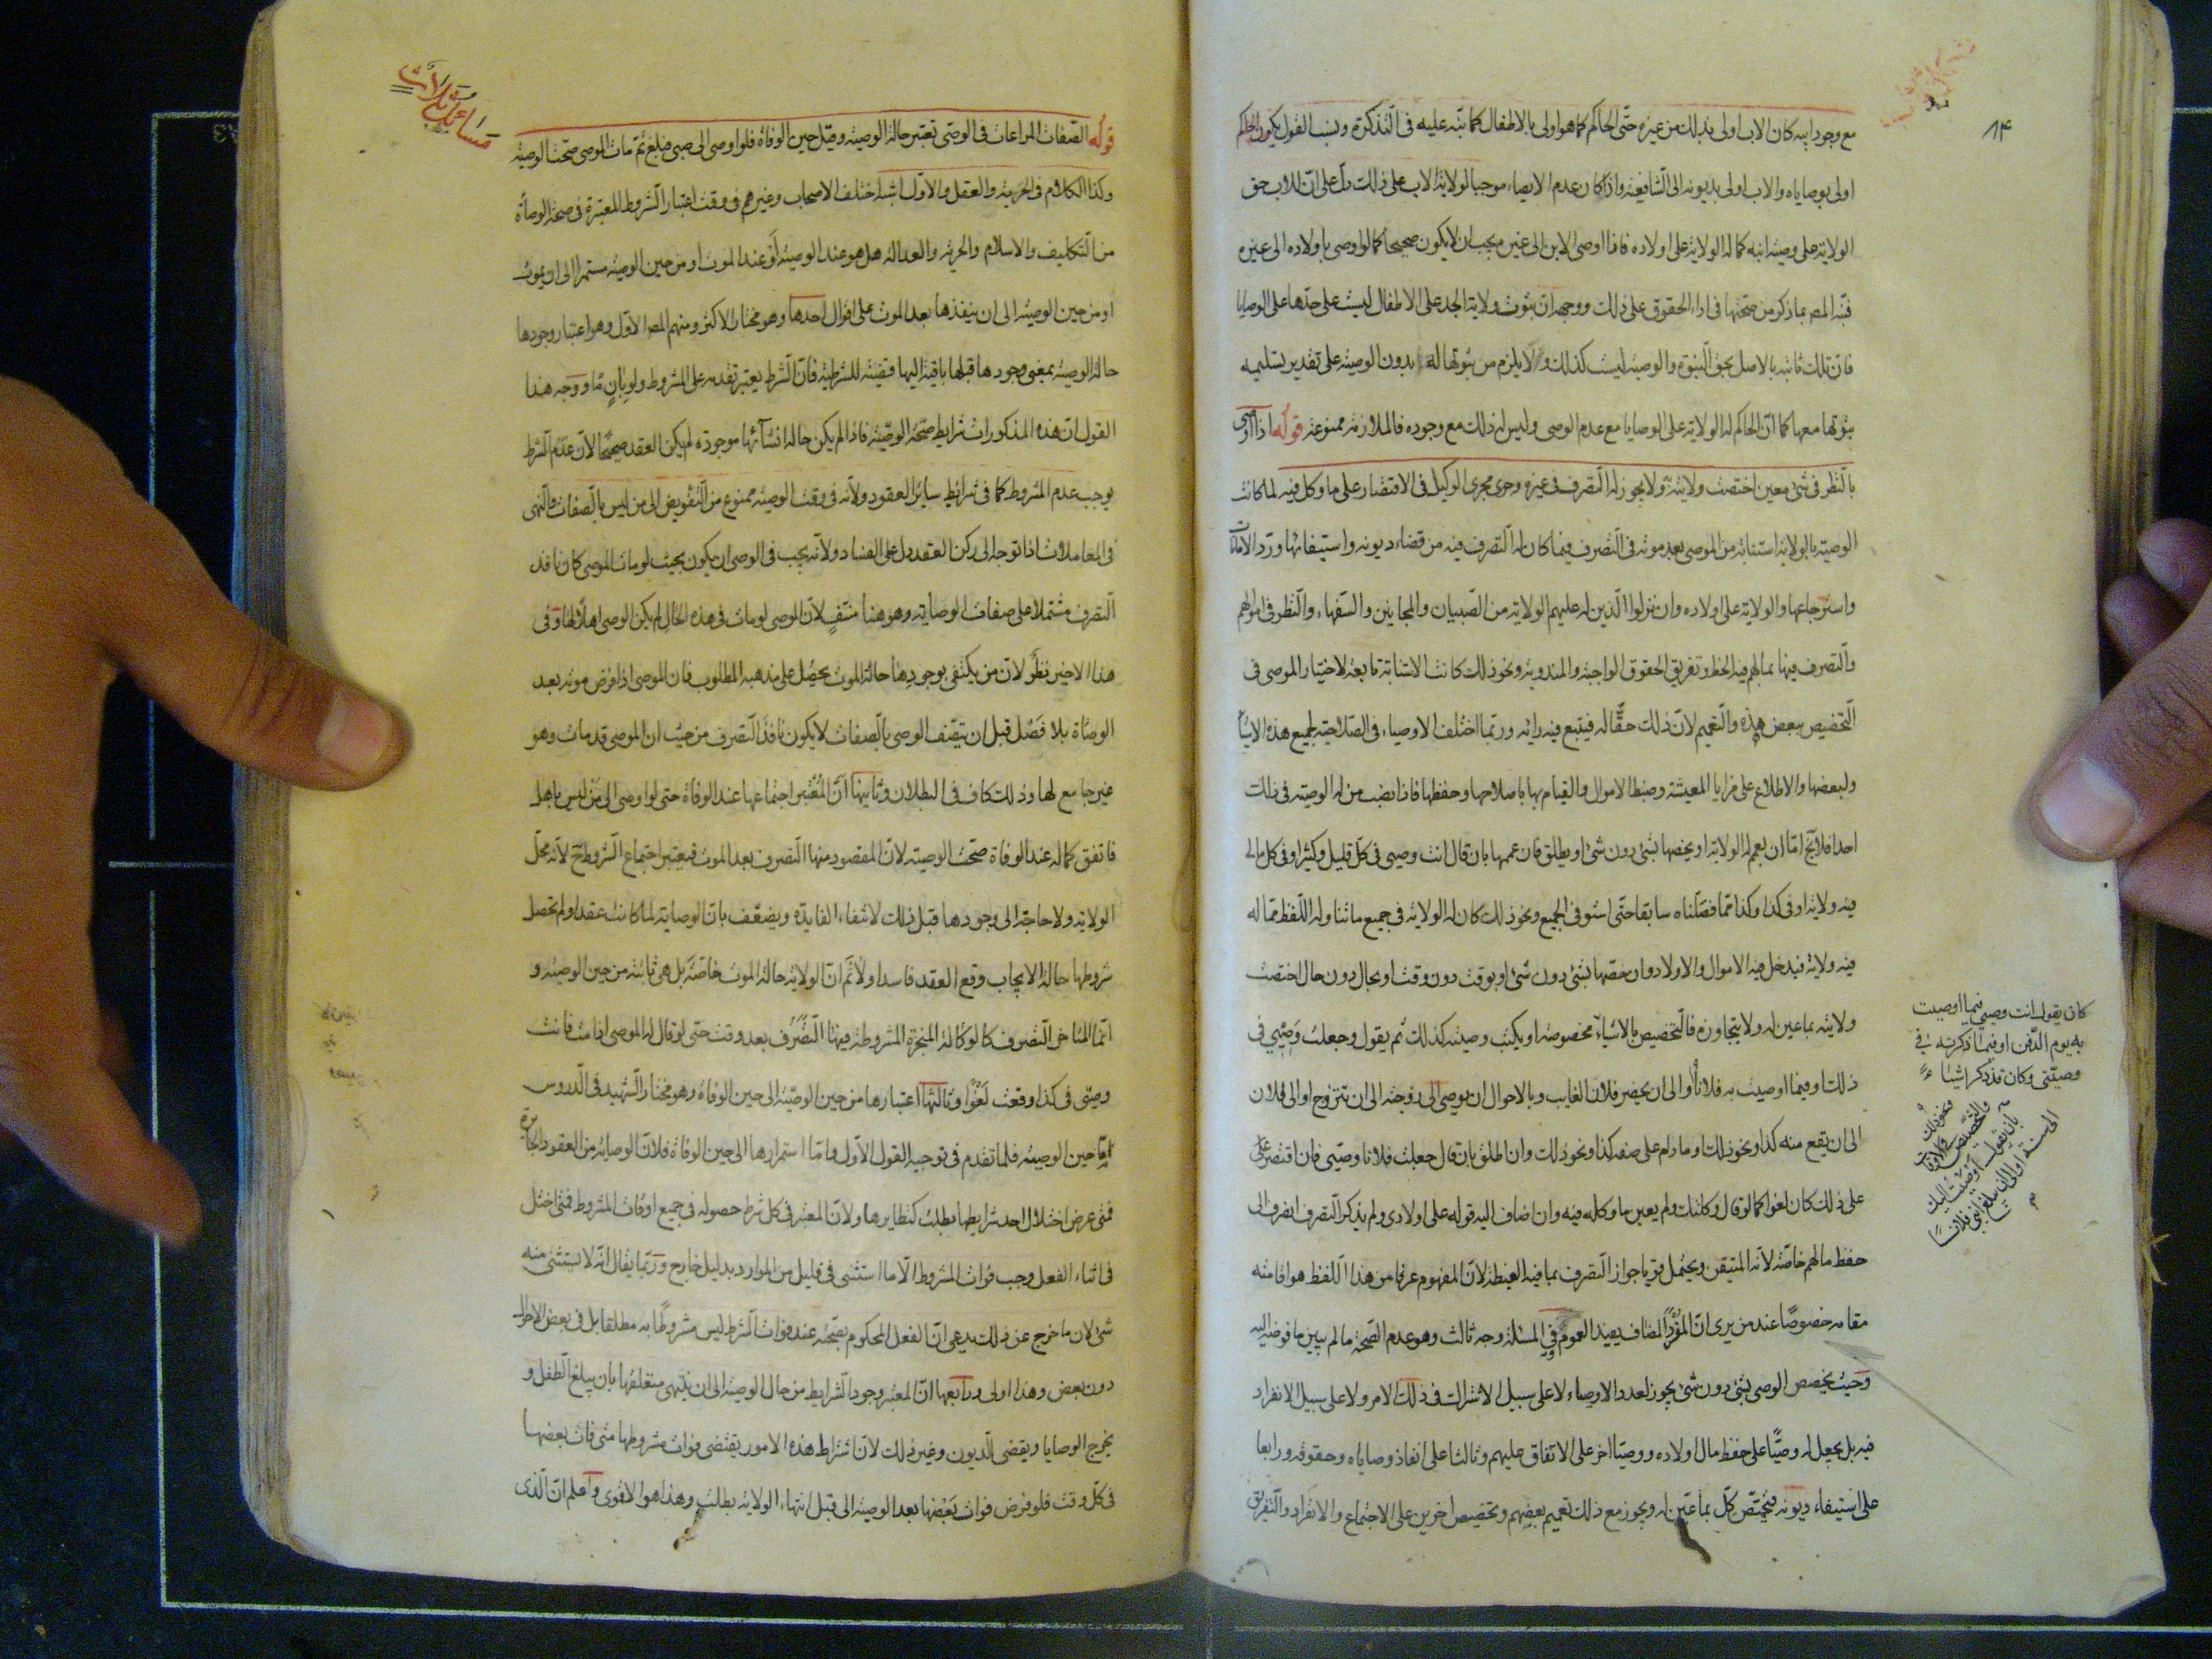 مع وجود ابيه كان الاب اولى بذلك من غيره حتى الحاكم كما هو اولى بالاطفال كما نبّه عليه فى التذكرة ونسب القول بكون الحاكم
اولى بوصاياه والاب اولى بديونه الى الشافعيّة واذا كان عدم الايصاء موجبا لولاية الاب على ذلك دلّ على انّ للاب حق
الولاية على وصيّة ابنه كما له الولاية على اولاده فاذا اوصى الابن الى غيره يجب ان لا يكون صحيحا كما لو اوصى باولاده الى غيره
فنبّه المص بما ذكر من صحتها فى اداء الحقوق على ذلك ووجهه ان ثبوت ولاية الجد على الاطفال ليست على حدّها على الوصايا
فانّ تلك ثابتة بالاصل بحق النبوة والوصية ليست كذلك ولا يلزم من ثبوتها له بدون الوصية على تقدير تسليمه
ثبوتها معها كما انّ الحاكم له الولاية على الوصايا مع عدم الوصى وليس له ذلك مع وجوده فالملازمة ممنوعة قوله اذا اوصى
بالنظر فى شئ معين اختصت ولايته ولا يجوز له التصرف فى غيره وجرى مجرى الوكيل فى الاقتصار على ما وكل فيه لما كانت
الوصية بالولاية استنابة من الموصى بعد موته فى التصرف فيما كان له التصرف فيه من قضاء ديونه واستيفائها وردّ الامانات
واسترجاعها والولاية على اولاده وان نزلوا الذين له عليهم الولاية من الصّبيان والمجانين والسفهاء والنظر فى اموالهم
والتصرف فيها بما لهم فيه الحظ وتفريق الحقوق الواجبة والمندوبة ونحو ذلك كانت الاستنابة تابعة لاختيار الموصى فى
التخصيص ببعض هذه والتعميم لانّ ذلك حقّا له فيتبع فيه رايه وربما اختلف الاوصياء فى الصّلاحية لجميع هذه الاشياء
ولبعضها والاطلاع على مزايا المعيشة وضبط الاموال والقيام بها باصلاحها وحفظها فاذا نصب من له الوصية فى ذلك
احدا فلا يخ امّا ان يعمم له الولاية او يخصها بشئ دون شئ او يطلق فان عممها بان قال انت وصيى فى كلّ قليل وكثير او فى كل مالى
فيه ولاية او فى كذا وكذا ممّا فصّلناه سابقا حتّى استوفى الجميع ونحو ذلك كان له الولاية فى جميع ما تناوله اللفظ ممّا له
فيه ولاية فيدخل فيه الاموال والاولاد وان خصّها بشئ دون شئ او بوقت دون وقت او بحال دون حال اختصت
ولايته بما عين له ولا يتجاوزه فالتخصيص بالاشياء مخصوصة او يكتب وصيته كذلك ثم يقول وجعلت وصيى فى
ذلك او فيما اوصيت به فلانا او الى ان يحضر فلان الغايب وبالاحوال ان يوصى الى زوجته الى ان تتزوج او الى فلان
الى ان يقع منه كذا ونحو ذلك او ما دام على صفة كذا ونحو ذلك وان اطلق بان قال جعلت فلانا وصيى فان اقتصر على
على ذلك كان لغوا كما لو قال وكلتك ولم يعين ما وكله فيه وان اضاف اليه قوله على اولادى ولم يذكر التصرف انصرف الى
حفظ مالهم خاصّة لانه المتيقن ويحتمل قويا جواز التصرف بما فيه الغبطة لانّ المفهوم عرفا من هذا اللفظ هو اقامته
مقامه خصوصًا عند من يرى انّ المفرد المضاف يفيد العموم وفى المسئلة وجه ثالث وهو عدم الصّحة ما لم يبين ما فوضه اليه
وحيث يخصص الوصى بشئ دون شئ يجوز تعدد الاوصياء لا على سبيل الاشتراك فى ذلك الامر ولا على سبيل الانفراد
فيه بل يجعل له وصيًّا على حفظ مال اولاده ووصيّا اخر على الانفاق عليهم وثالثا على انفاذ وصاياه وحقوقه ورابعا
على استيفاء ديونه فيختصّ كلّ بما عيّن له ويجوز مع ذلك تعميم بعضهم وتخصيص اخرين على الاجتماع والانفراد والتفريق
كان يقول انت وصيى فيما اوصيت
به يوم الدّفن او فيما ذكرته فى
وصيّتى وكان قد ذكر اشياء
ونحو ذلك
والتخصيص بالاوقات
بان يقول اوصيت اليك
الى سنة او الى ان يبلغ ابنى فلان
قوله الصّفات المراعات فى الوصى تعتبر حالة الوصية وقيل حين الوفاة فلو اوصى الى صبى فبلغ ثم مات الموصى صحّت الوصية
وكذا الكلام فى الحرية والعقل والاول اشبه اختلف الاصحاب وغيرهم فى وقت اعتبار الشروط المعتبرة فى صحة الوصاة
من التكليف والاسلام والحرية والعدالة هل هو عند الوصية او عند الموت او من حين الوصية مستمرا الى ان يموت
او من حين الوصية الى ان ينفذها بعد الموت على اقوال احدها وهو مختار الاكثر ومنهم المص الاول وهو اعتبار وجودها
حالة الوصية بمعنى وجودها قبلها باقية اليها قضية للشرطية فانّ الشرط يعتبر تقدمه على المشروط ولو بآنٍ مّا ووجه هذا
القول انّ هذه المذكورات شرايط صحّة الوصيّة فاذا لم يكن حالة انشائها موجودة لم يكن العقد صحيحًا لانّ عدم الشرط
يوجب عدم المشروط كما فى شرايط ساير العقود ولانه فى وقت الوصية ممنوع من التفويض الى من ليس بالصفات فالنهى
فى المعاملات اذا توجه الى ركن العقد دل على الفساد ولانّه يجب فى الوصى ان يكون بحيث لو مات الموصى كان نافذ
التصرف مشتملا على صفات الوصاية وهو هنا منتفٍ لانّ الموصى لو مات فى هذه الحال لم يكن الوصى اهلا لها وفى
هذا الاخير نظر لانّ من يكتفى بوجودها حالة الموت يحصل على مذهبه المطلوب فان الموصى اذا فرض موته بعد
الوصاة بلا فصل قبل ان يتصف الوصى بالصفات لا يكون نافذ التصرف من حيث ان الموصى قد مات وهو
غير جامع لها وذلك كاف فى البطلان وثانيها انّ المعتبر اجتماعها عند الوفاة حتى لو اوصى الى من ليس باهل
فاتفق كماله عند الوفاة صحّت الوصية لانّ المقصود منها التصرف بعد الموت فيعتبر اجتماع الشروط ح لانّه محلّ
الولاية ولا حاجة الى وجودها قبل ذلك لانتفاء الفايدة ويضعّف بانّ الوصاية لما كانت عقدا ولم تحصل
شروطها حالة الايجاب وقع العقد فاسدا ولا نّم انّ الولاية حالة الموت خاصّة بل هى ثابتة من حين الوصية و
انّما المتاخر التصرف كالوكالة المنجزة المشروطة فيها التصرف بعد وقت حتى لو قال له الموصى اذا متّ فانت
وصيّى فى كذا وقعت لغوا وثالثها اعتبارها من حين الوصيّة الى حين الوفاة وهو مختار الشهيد فى الدروس
امّا حين الوصية فلما تقدم فى توجيه القول الاوّل وامّا استمرارها الى حين الوفاة فلانّ الوصاية من العقود الجايزة
فمتى عرض اختلال احد شرايطها بطلت كنظايرها ولانّ المعتبر فى كل شرط حصوله فى جميع اوقات المشروط فمتى اختل
فى اثناء الفعل وجب فوات المشروط الّا ما استثنى فى قليل من الموارد بدليل خارج وربّما يقال انّه لا يستثنى منه
شئ لان ما خرج عن ذلك يدعى انّ الفعل المحكوم بصحّته عند فوات الشرط ليس مشروطًا به مطلقا بل فى بعض الاحوال
دون بعض وهذا اولى ورابعها انّ المعتبر وجود الشرايط من حال الوصية الى ان ينتهى متعلقها بان يبلغ الطفل و
يخرج الوصايا ويقضى الديون وغير ذلك لانّ اشتراط هذه الامور يقتضى فوات مشروطها متى فات بعضها
فى كل وقت فلو فرض فوات بعضها بعد الوصية الى قبل انتهاء الولاية بطلت وهذا هو الاقوى واعلم انّ الّذى